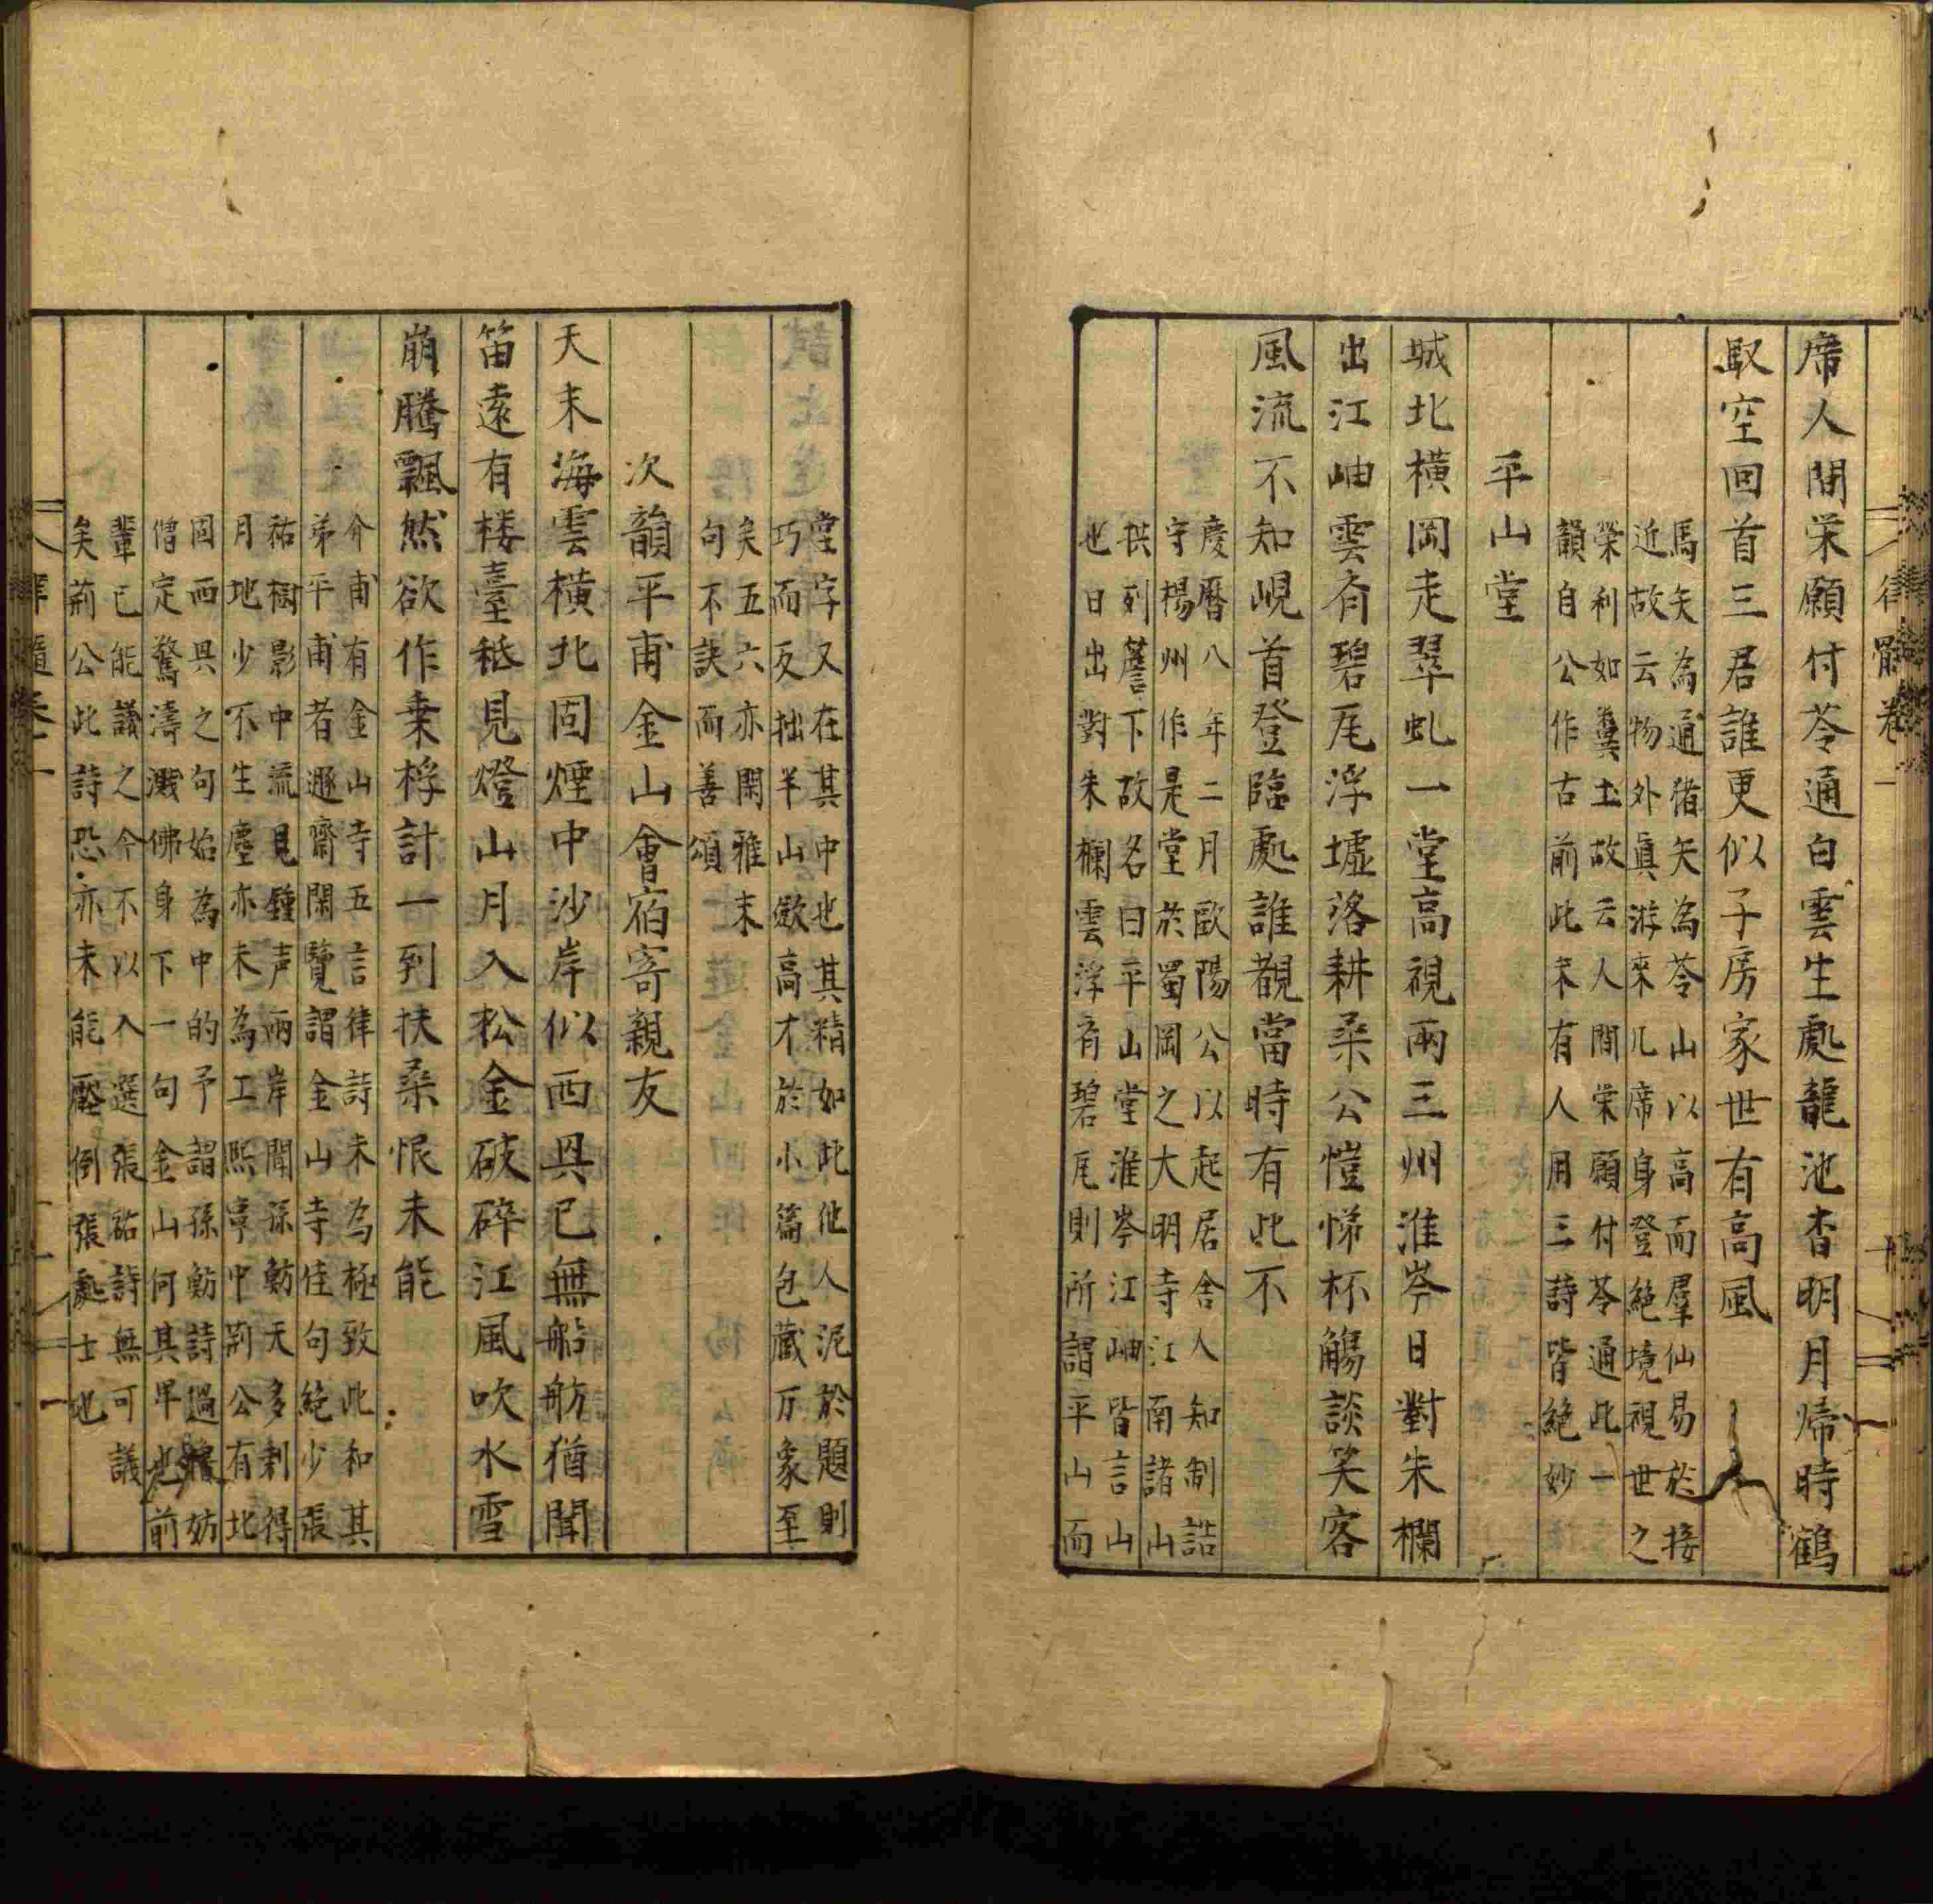 律髓卷一
席人間栄願付苓通白雲生處龍池杳明月㷌時鶴
馭空回首三君誰更似子房家世有高風
馬矢為通猪矢為苓山以高而羣仙易於接
近故云物外眞游來几席身登絶境視世之
榮利如糞土故云人間栄願付苓通此一
韻自公作古前此未有人用三詩皆絶妙
平山堂
城北橫岡走翠虬一堂高視兩三州淮岑日對朱欄
出江岫雲斉碧瓦浮墟落耕桑公愷悌杯觴談笑客
風流不知峴首登臨處誰覩當時有此不
慶曆八年二月歐陽公以起居舍人知制誥
守楊州作是堂於蜀岡之大明寺江南諸山
拱列簷下故名曰平山堂淮岑江岫皆言山
也日出對朱欄雲浮斉碧瓦則所謂平山而
堂字又在其中也其精如此他人泥於題則
巧而反拙半山歛高才於小篇包蔵万象至
矣五六亦閑雅末
句不訣而善頌
次韻平甫金山會宿寄親友
天末海雲橫北固煙中沙岸似西興已無船舫猶聞
笛遠有楼臺秪見燈山月入松金破碎江風吹水雪
崩騰飄然欲作乗桴計一到扶桑恨未能
介甫有金山寺五言律詩未為極致此和其
弟平甫者遯齋閑覽謂金山寺佳句絶少張
祐樹影中流見鍾声兩岸聞孫魴天多剰得
月地少不生塵亦未為工熈寧中荆公有北
固西興之句始為中的予謂孫魴詩過櫓妨
僧定驚濤濺佛身下一句金山何其早也前
輩已能議之今不以入選張祐詩無可議
矣荊公此詩恐亦未能壓倒張處士也
律髓卷一